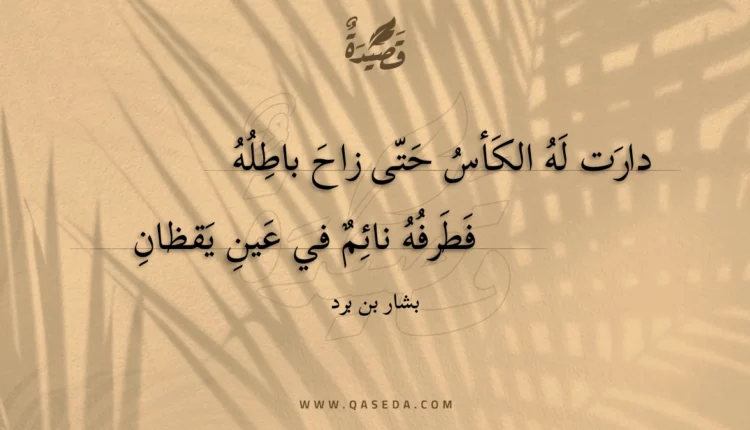 قَصِيْدَةٌ
دارَت لَهُ الكَأسُ حَتّى زاحَ باطِلُهُ
فَطَرفُهُ نائِمٌ في عَينِ يَقظانِ
بشار بن برد
WWW.QASEDA.COM